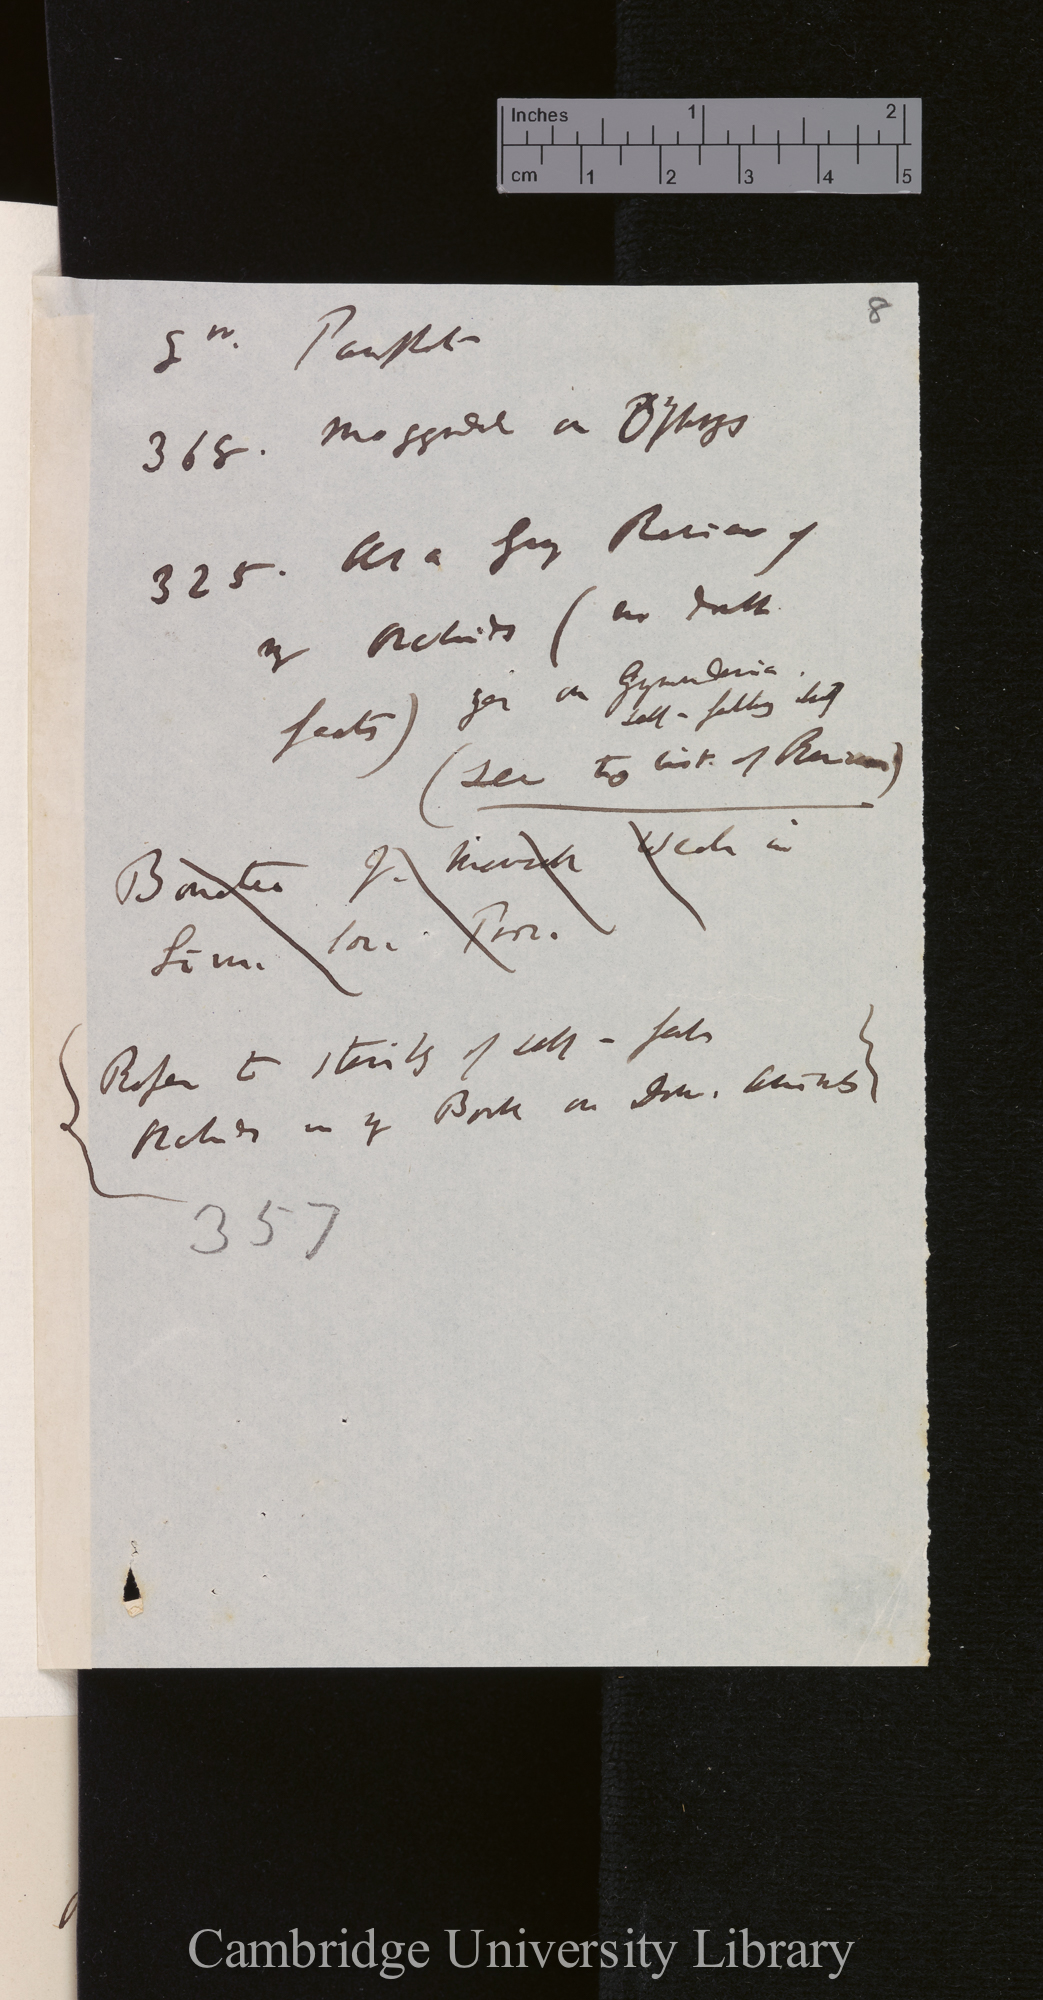 Inches 1 2
cm 1 2 3 4 5
8
Pamphlets
368. Moggridge on Ophrys
325. Asa Gray Review of
my Orchids (no doubt
facts) yes on Gymnadenia.
self-fertility
(see two list of Reviews)
Bonatea J. Mansel Weale in
Linn. Soc. Proc.
Refer to sterility of self-fert.
Orchids in my Book on Dom. Animals
357
Cambridge University Library